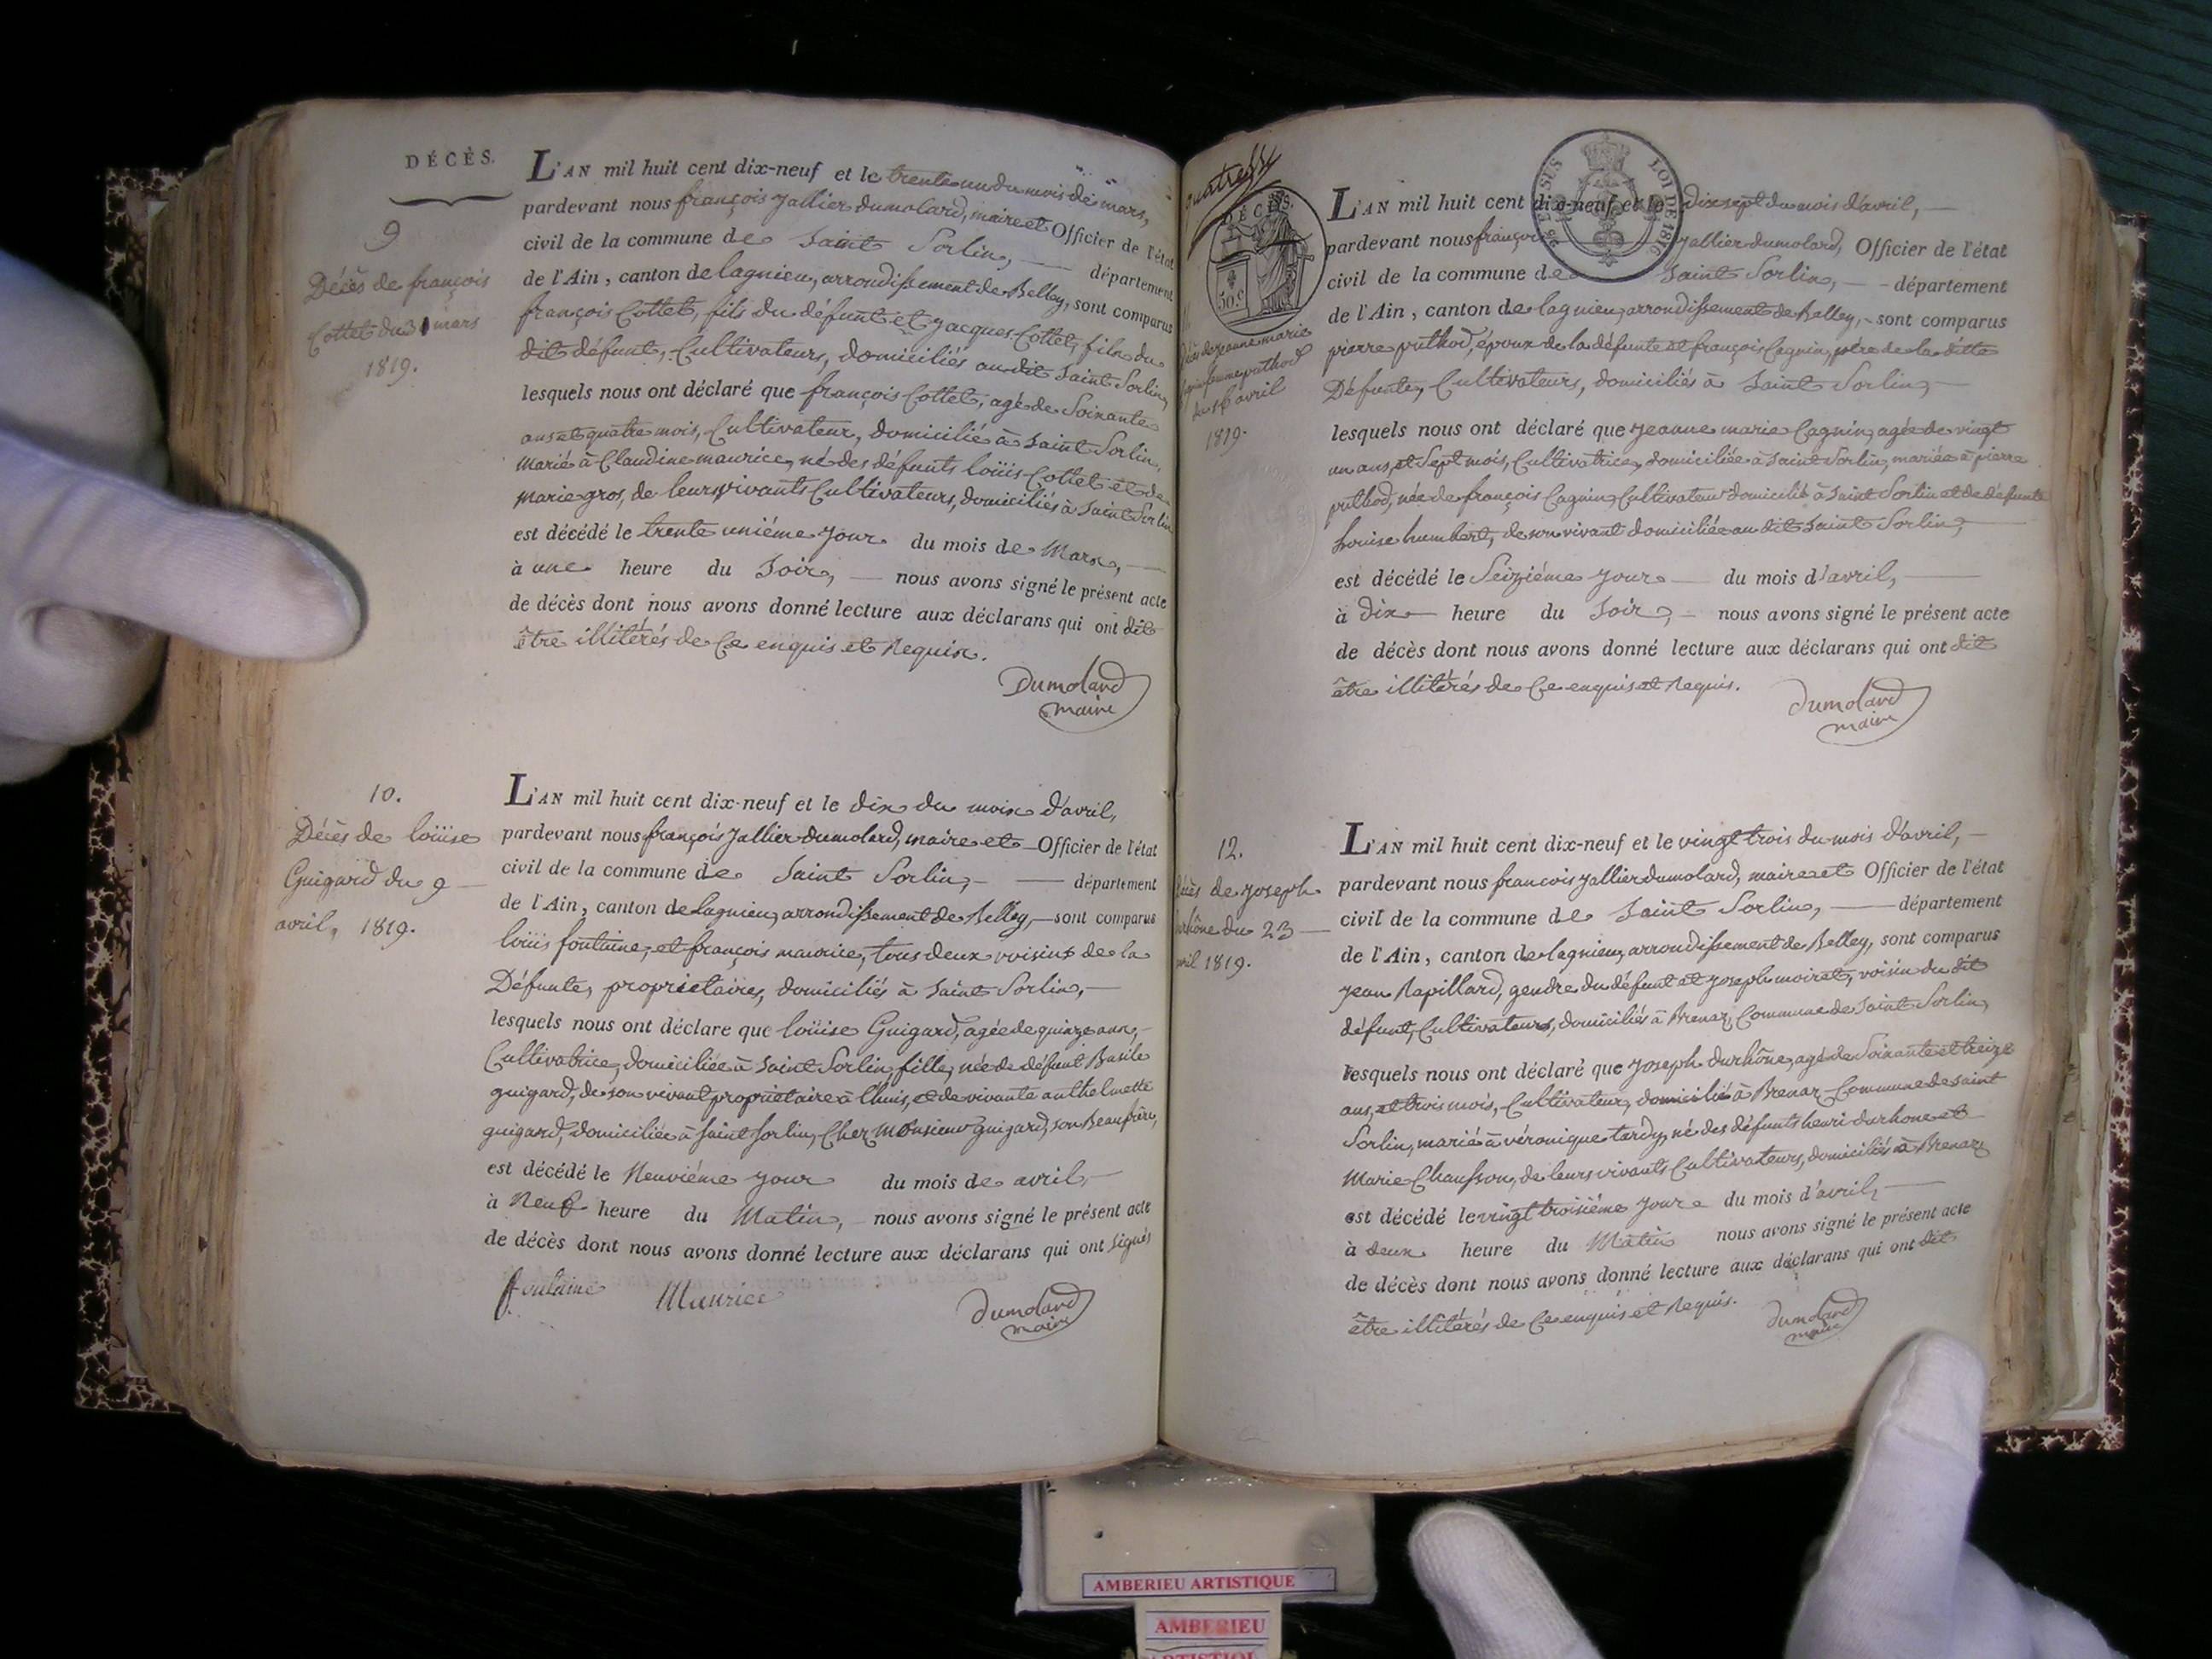 DÉCÈS.
9
Décès de françois
Cottet du 31 mars
1819.
L'AN mil huit cent dix-neuf et le trente un du mois de mars,
pardevant nous françois Jallier dumolard, maire et Officier de l'état
civil de la commune de Saint Sorlin, département
de l'Ain, canton de lagnieu, arrondissement de Belley, sont comparus
françois Cottet, fils du défunt et jacques Cottet, fils du
dit défunt, Cultivateurs, domiciliés au dit Saint Sorlin,
lesquels nous ont déclaré que françois Cottet, agé de Soixante
ans et quatre mois, Cultivateur, domicilié à Saint Sorlin,
marié à Claudine maurice, né des défunts loüis Cottet et de
marie gros, de leurs vivants Cultivateurs, domiciliés à Saint Sorlin
est décédé le trente uniéme jour du mois de Mars,
à une heure du Soir, nous avons signé le présent acte
de décès dont nous avons donné lecture aux déclarans qui ont dit
être illitérés de Ce enquis et Requis.
Dumolard
maire
10.
Décès de loüise
Guigard du 9
avril, 1819.
L'AN mil huit cent dix-neuf et le dix du mois d'avril,
pardevant nous françois Jallier dumolard, maire et Officier de l'état
civil de la commune de Saint Sorlin, département
de l'Ain, canton de Lagnieu, arrondissement de Belley, sont comparus
loüis fontaine, et françois maurice, tous deux voisins de la
Défunte, proprietaires, domiciliés à Saint Sorlin,
lesquels nous ont déclaré que loüise Guigard, agée de quinze ans,
Cultivatrice, domiciliée à Saint Sorlin, fille, née de défunt Basile
guigard, de son vivant propriétaire à lhuis, et de vivante anthelmette
guigard, domiciliée à Saint Sorlin, Chez Monsieur guigard, son Beaufrère,
est décédé le Neuviéme jour du mois de avril,
à Neuf heure du Matin, nous avons signé le présent acte
de décès dont nous avons donné lecture aux déclarans qui ont signés
fontaine Maurice
Dumolard
maire
DÉCÈS.
50 c
LOI DE 1816
Décès de jeanne marie
femme puthod
du 16 avril
1819.
L'AN mil huit cent dix-neuf et le dix sept du mois d'avril,
pardevant nous françois Jallier dumolard, Officier de l'état
civil de la commune de Saint Sorlin, département
de l'Ain, canton de lagnieu, arrondissement de Belley, sont comparus
pierre puthod, époux de la défunte et françois Cagnin, père de la ditte
Défunte, Cultivateurs, domiciliés à Saint Sorlin,
lesquels nous ont déclaré que jeanne marie Cagnin, agée de vingt
un ans, et Sept mois, Cultivatrice, domiciliée à Saint Sorlin, mariée à pierre
puthod, née de françois Cagnin, Cultivateur domicilié à Saint Sorlin et de défunte
Louise humbert, de son vivant domiciliée au dit Saint Sorlin,
est décédé le Seiziéme jour du mois d'avril,
à dix heure du Soir, nous avons signé le présent acte
de décès dont nous avons donné lecture aux déclarans qui ont dit
être illitérés de Ce enquis et Requis.
Dumolard
maire
12.
Décès de joseph
durhône du 23
avril 1819.
L'AN mil huit cent dix-neuf et le vingt trois du mois d'avril,
pardevant nous francois Jallier dumolard, maire et Officier de l'état
civil de la commune de Saint Sorlin, département
de l'Ain, canton de lagnieu, arrondissement de Belley, sont comparus
jean Rapillard, gendre du défunt et joseph moiret, voisin du dit
défunt, Cultivateurs, domiciliés à Brenaz, Commune de Saint Sorlin,
lesquels nous ont déclaré que joseph durhône, agé de Soixante et treize
ans, et trois mois, Cultivateur, domicilié à Brenaz Commune de Saint
Sorlin, marié à véronique tardy, né des défunts henri durhone et
Marie Chausson, de leurs vivants Cultivateurs, domiciliés à Brenaz
est décédé le vingt troisiéme jour du mois d'avril,
à deux heure du Matin nous avons signé le présent acte
de décès dont nous avons donné lecture aux déclarans qui ont dit
être illitérés de Ce enquis et Requis.
Dumolard
maire
AMBERIEU ARTISTIQUE
AMBERIEU
ARTISTIQUE